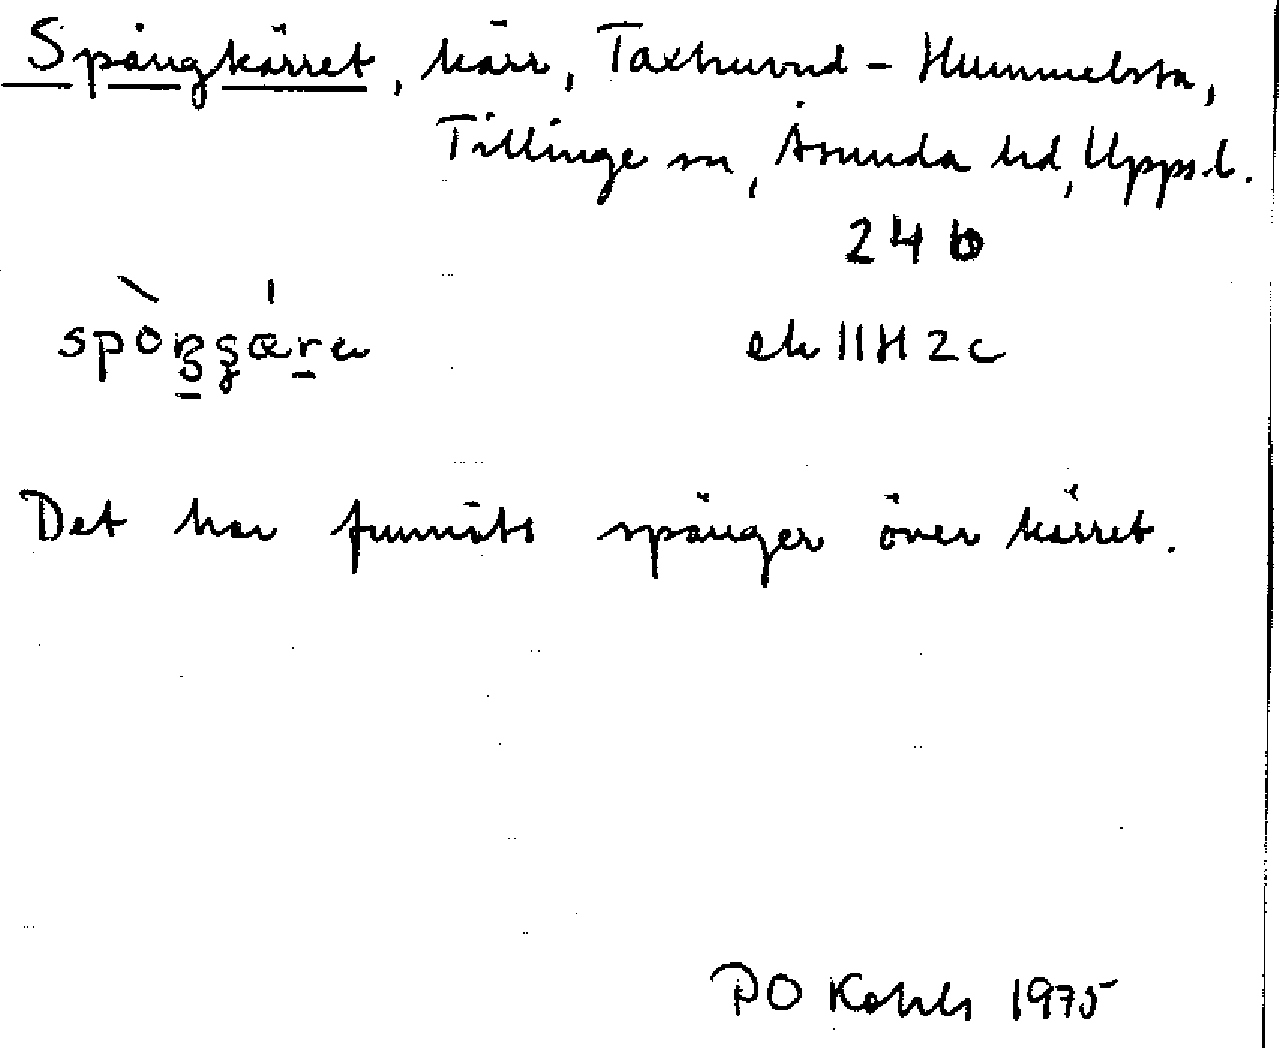 Spångkärret, kärr, Taxhuvud - Hummelsta,
Tillinge sn, Åsunda hd, Upps.l.
24 b
ek 11H 2c
Det har funnits spänger över kärret.
PO Kohls 1975